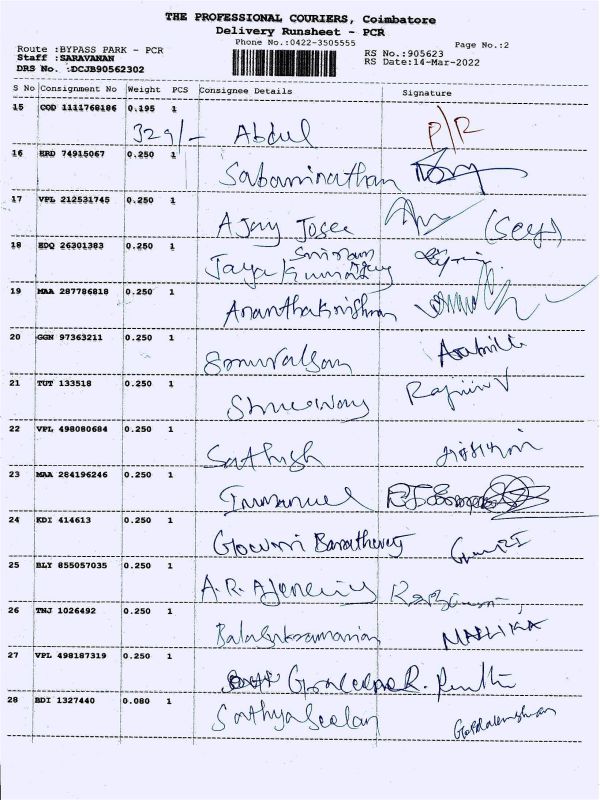 THE PROFESSIONAL COURIERS, Coimbatore
Delivery Runsheet - PCR
Phone No.:0422-3505555
Page No.:2
Route :BYPASS PARK - PCR
RS No.:905623
Staff :SARAVANAN
RS Date:14-Mar-2022
DRS No. :DCJB90562302
S No Consignment No Weight PCS Consignee Details Signature
15 COD 1111768186 0.195 1
329/- Abdul P/R
16 HRD 74915067 0.250 1
Sabarinathan
17 VPL 212531745 0.250 1
Ajay Josee
18 EDQ 26301383 0.250 1
Sriram
Jaya Kumar
19 MAA 287786818 0.250 1
Ananthakrishnan
20 GGN 97363211 0.250 1
21 TUT 133518 0.250 1
22 VPL 498080684 0.250 1
Sathish
23 MAA 284196246 0.250 1
Immanuel
24 KDI 414613 0.250 1
Gowri
25 BLY 855057035 0.250 1
A.R.
26 TNJ 1026492 0.250 1
Balasubramanian MALLIKA
27 VPL 498187319 0.250 1
28 BDI 1327440 0.080 1
Sathyaseelan